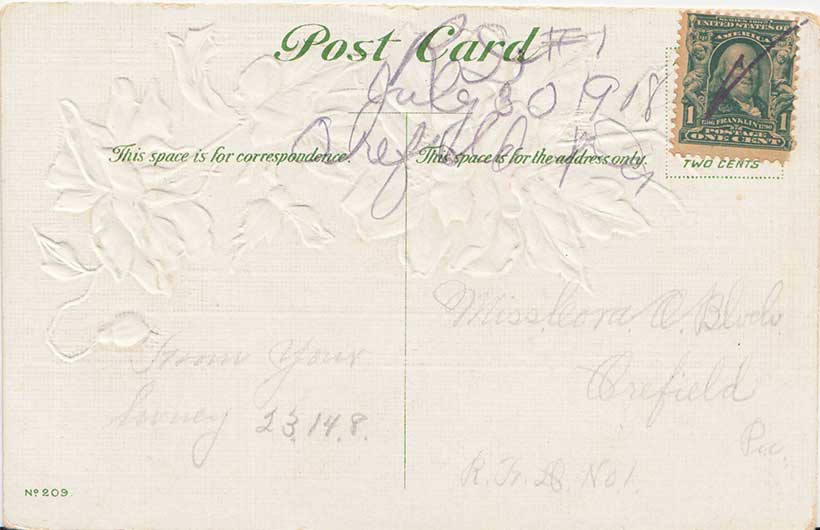 Post Card
#1
July 30 1918
Orefield Pa
This space is for correspondence.
This space is for the address only.
SERIES 1902
UNITED STATES OF
AMERICA
1 1
FRANKLIN
POSTAGE
ONE CENT
TWO CENTS
Miss Cora O.
Orefield
Pa.
R. F. D. No 1.
From Your
23.14.8.
No 209.